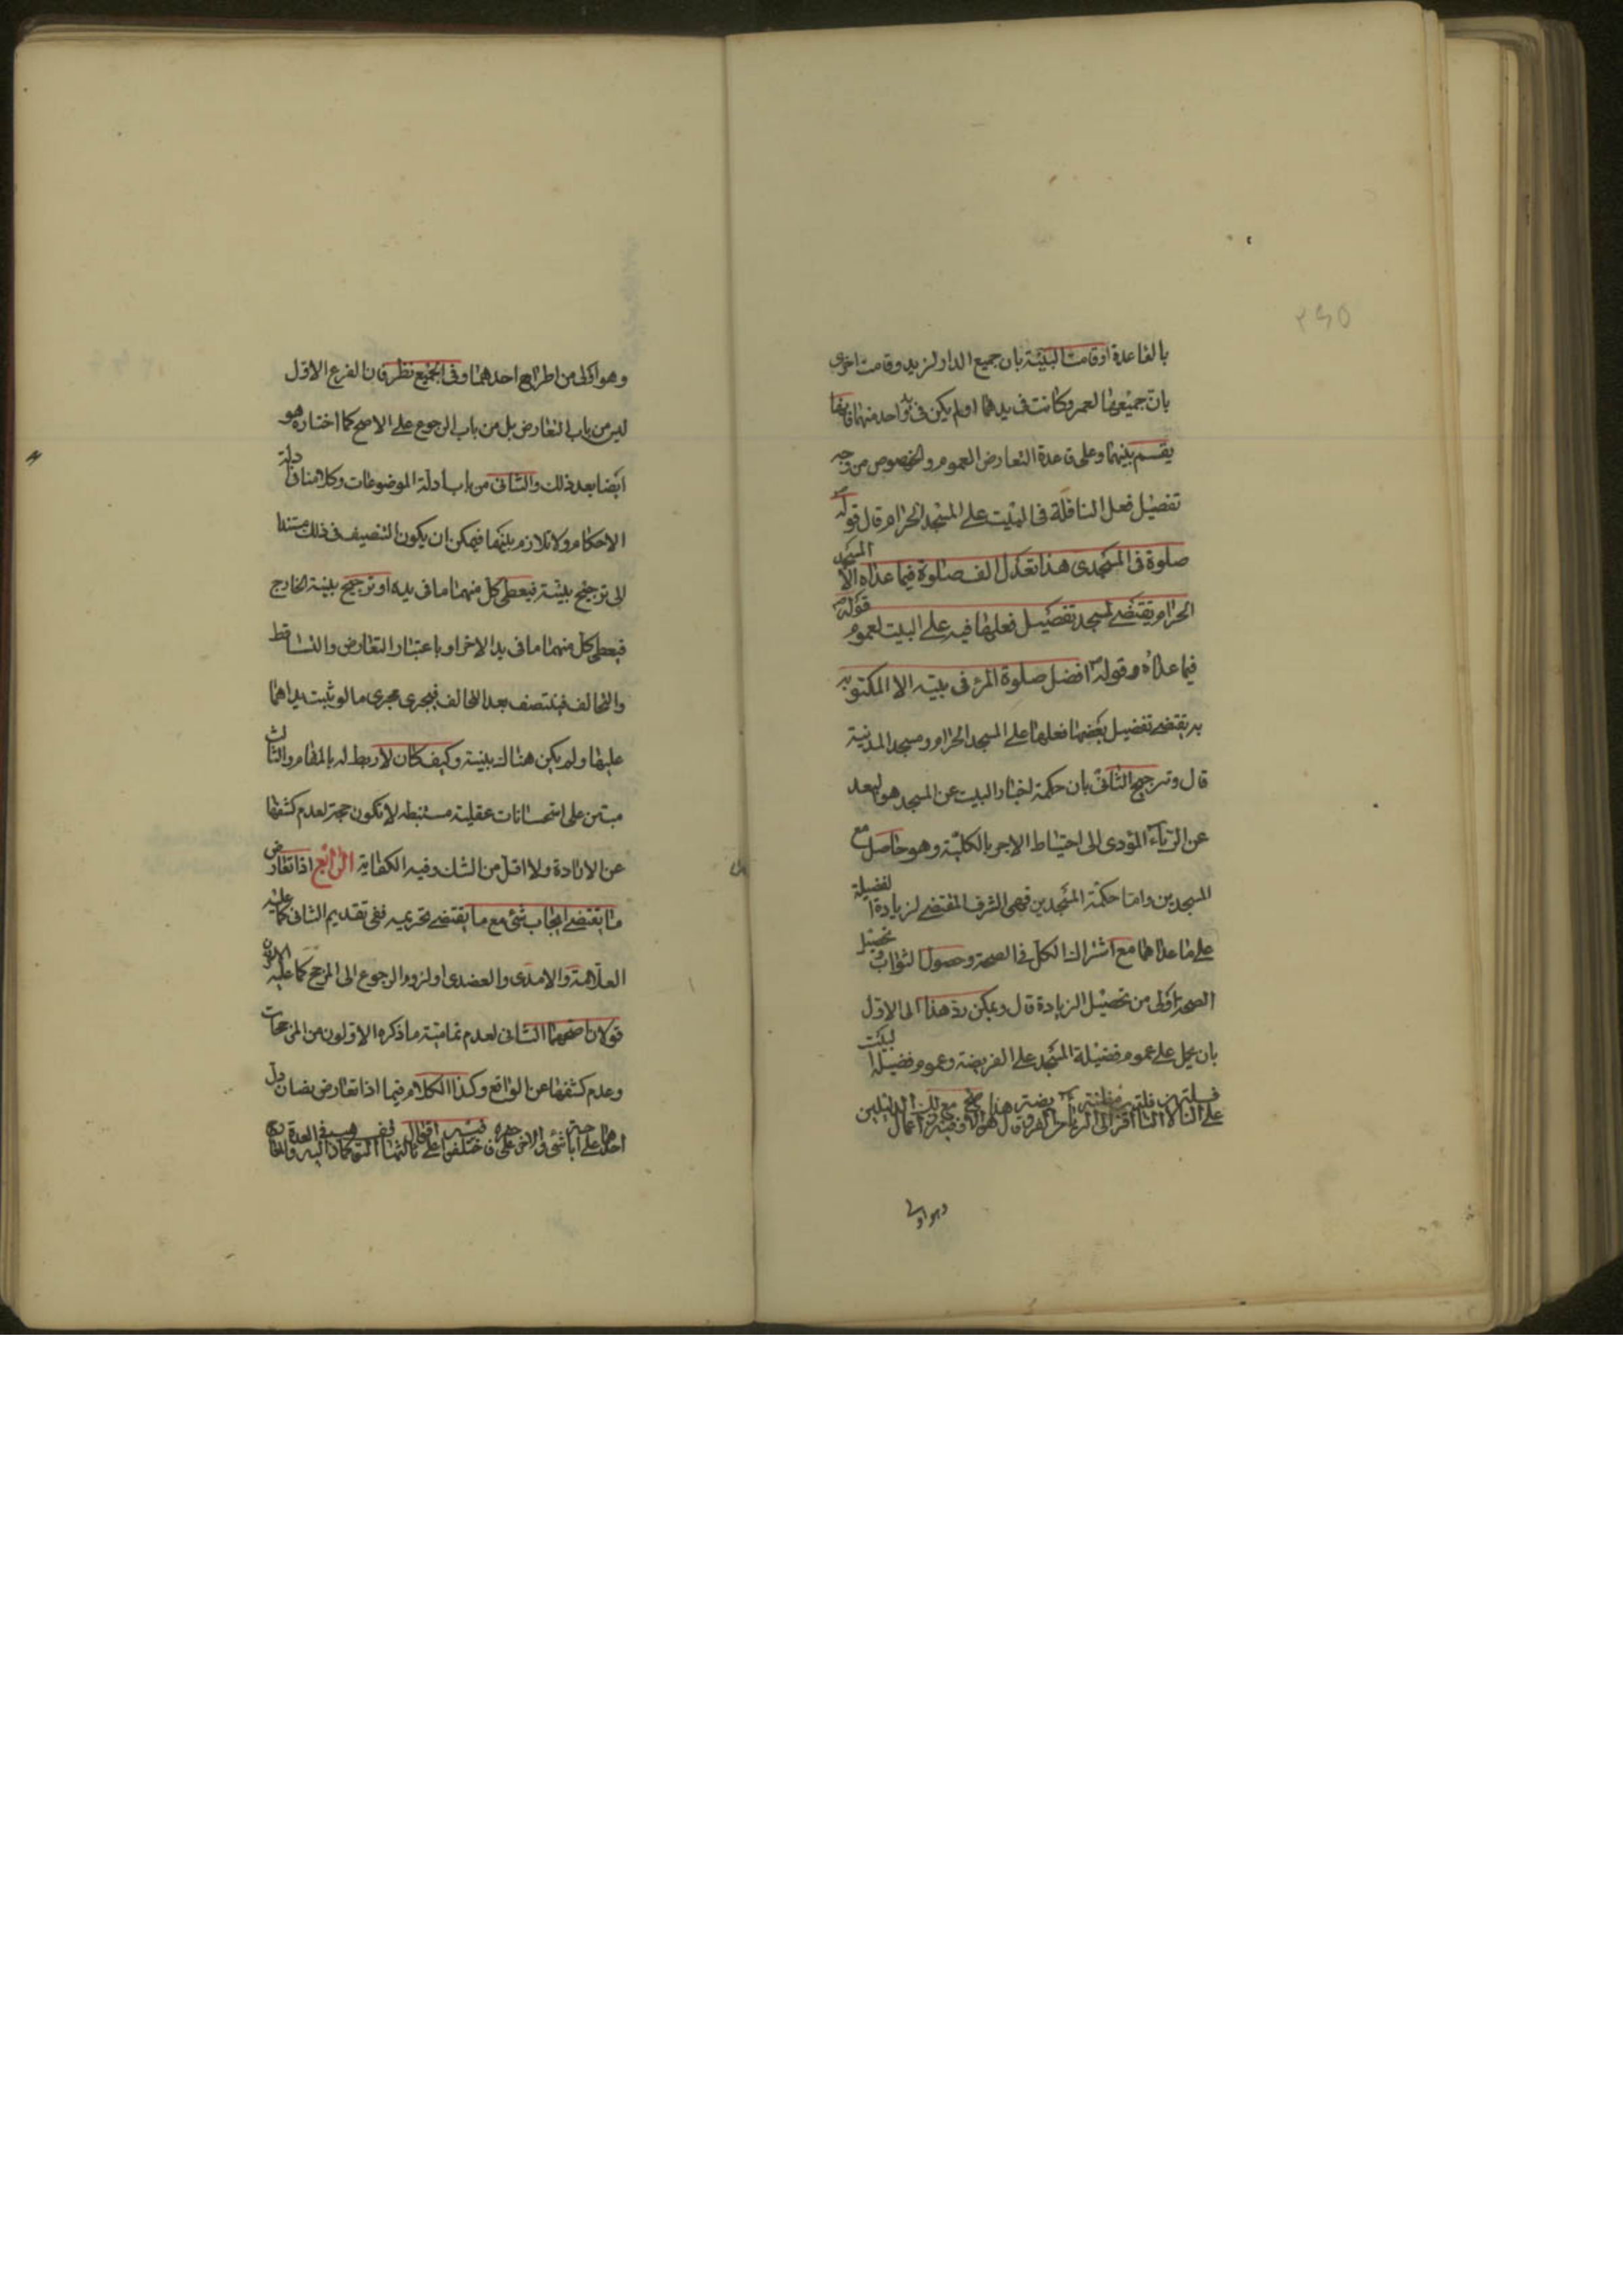 بالقاعدة او قامت البينة بان جميع الدار لزيد وقامت اخرى
بان جميعها لعمرو وكانت في يدهما او لم يكن في يد واحد منهما فانها
يقسم بينهما وعلى قاعدة التعارض العموم والخصوص من وجه
تفضيل فعل النافلة في البيت على المسجد الحرام قال قوله
صلوة في المسجدى هذا تعدل الف صلوة فيما عداه الا المسجد
الحرام يقتضي لمسجد تفضيل فعلها فيه على البيت لعموم قوله
فيما عداه وقوله افضل صلوة المرء في بيته الا المكتوبة
به يقتضي تفضيل بعضها فعلها على المسجد الحرام ومسجد المدينة
قال وترجيح الثاني بان حكمة اختيار البيت عن المسجد هو لبعد
عن الرياء المؤدى الى احتياط الاجر بالكلية وهو حاصل مع
المسجدين واما حكمة المسجدين فهى الشرف المقتضي لزيادة الفضيلة
على ما عداهما مع اشتراك الكل في الصحة وحصول الثواب وتحصيل
الصحة اولى من تحصيل الزيادة قال ويمكن رد هذا الى الاول
بان يحمل على عموم فضيلة المسجد على الفريضة وعموم فضيلة البيت
على النافلة
وهو اولى
وهو اولى من اطراح احدهما وفي الجميع نظر فان الفرع الاول
ليس من باب التعارض بل من باب الرجوع على الاصح كما اختاره هو
ايضا بعد ذلك والثاني من باب ادلة الموضوعات وكلامنا في ادلة
الاحكام ولا تلازم بينهما فيمكن ان يكون التنصيف في ذلك مستندا
الى ترجيح بينة فيعطى كل منهما ما في يده او ترجيح بينة الخارج
فيعطى كل منهما ما في يد الاخر او باعتبار التعارض والتساقط
والتخالف فينتصف بعد التخالف فيجرى مجرى ما لو ثبت يداهما
عليها ولم يكن هناك بينة وكيف كان لا ربط له بالمقام والثالث
مبتن على استحسانات عقلية مستنبطه لا تكون حجة لعدم كشفها
عن الارادة ولا اقل من الشك وفيه الكفاية الرابع اذا تعارض
ما يقتضي ايجاب شئ مع ما يقتضي تحريمه ففي تقديم الثاني كما عليه
العلامة والامدى والعضدى او لزوم الرجوع الى المرجح كما عليه الاكثرون
قولان اصحهما الثاني لعدم تمامية ما ذكره الاولون من المرجحات
وعدم كشفها عن الواقع وكذا الكلام فيما اذا تعارض نصان دل
احدهما على اباحة شئ والاخر على حظره